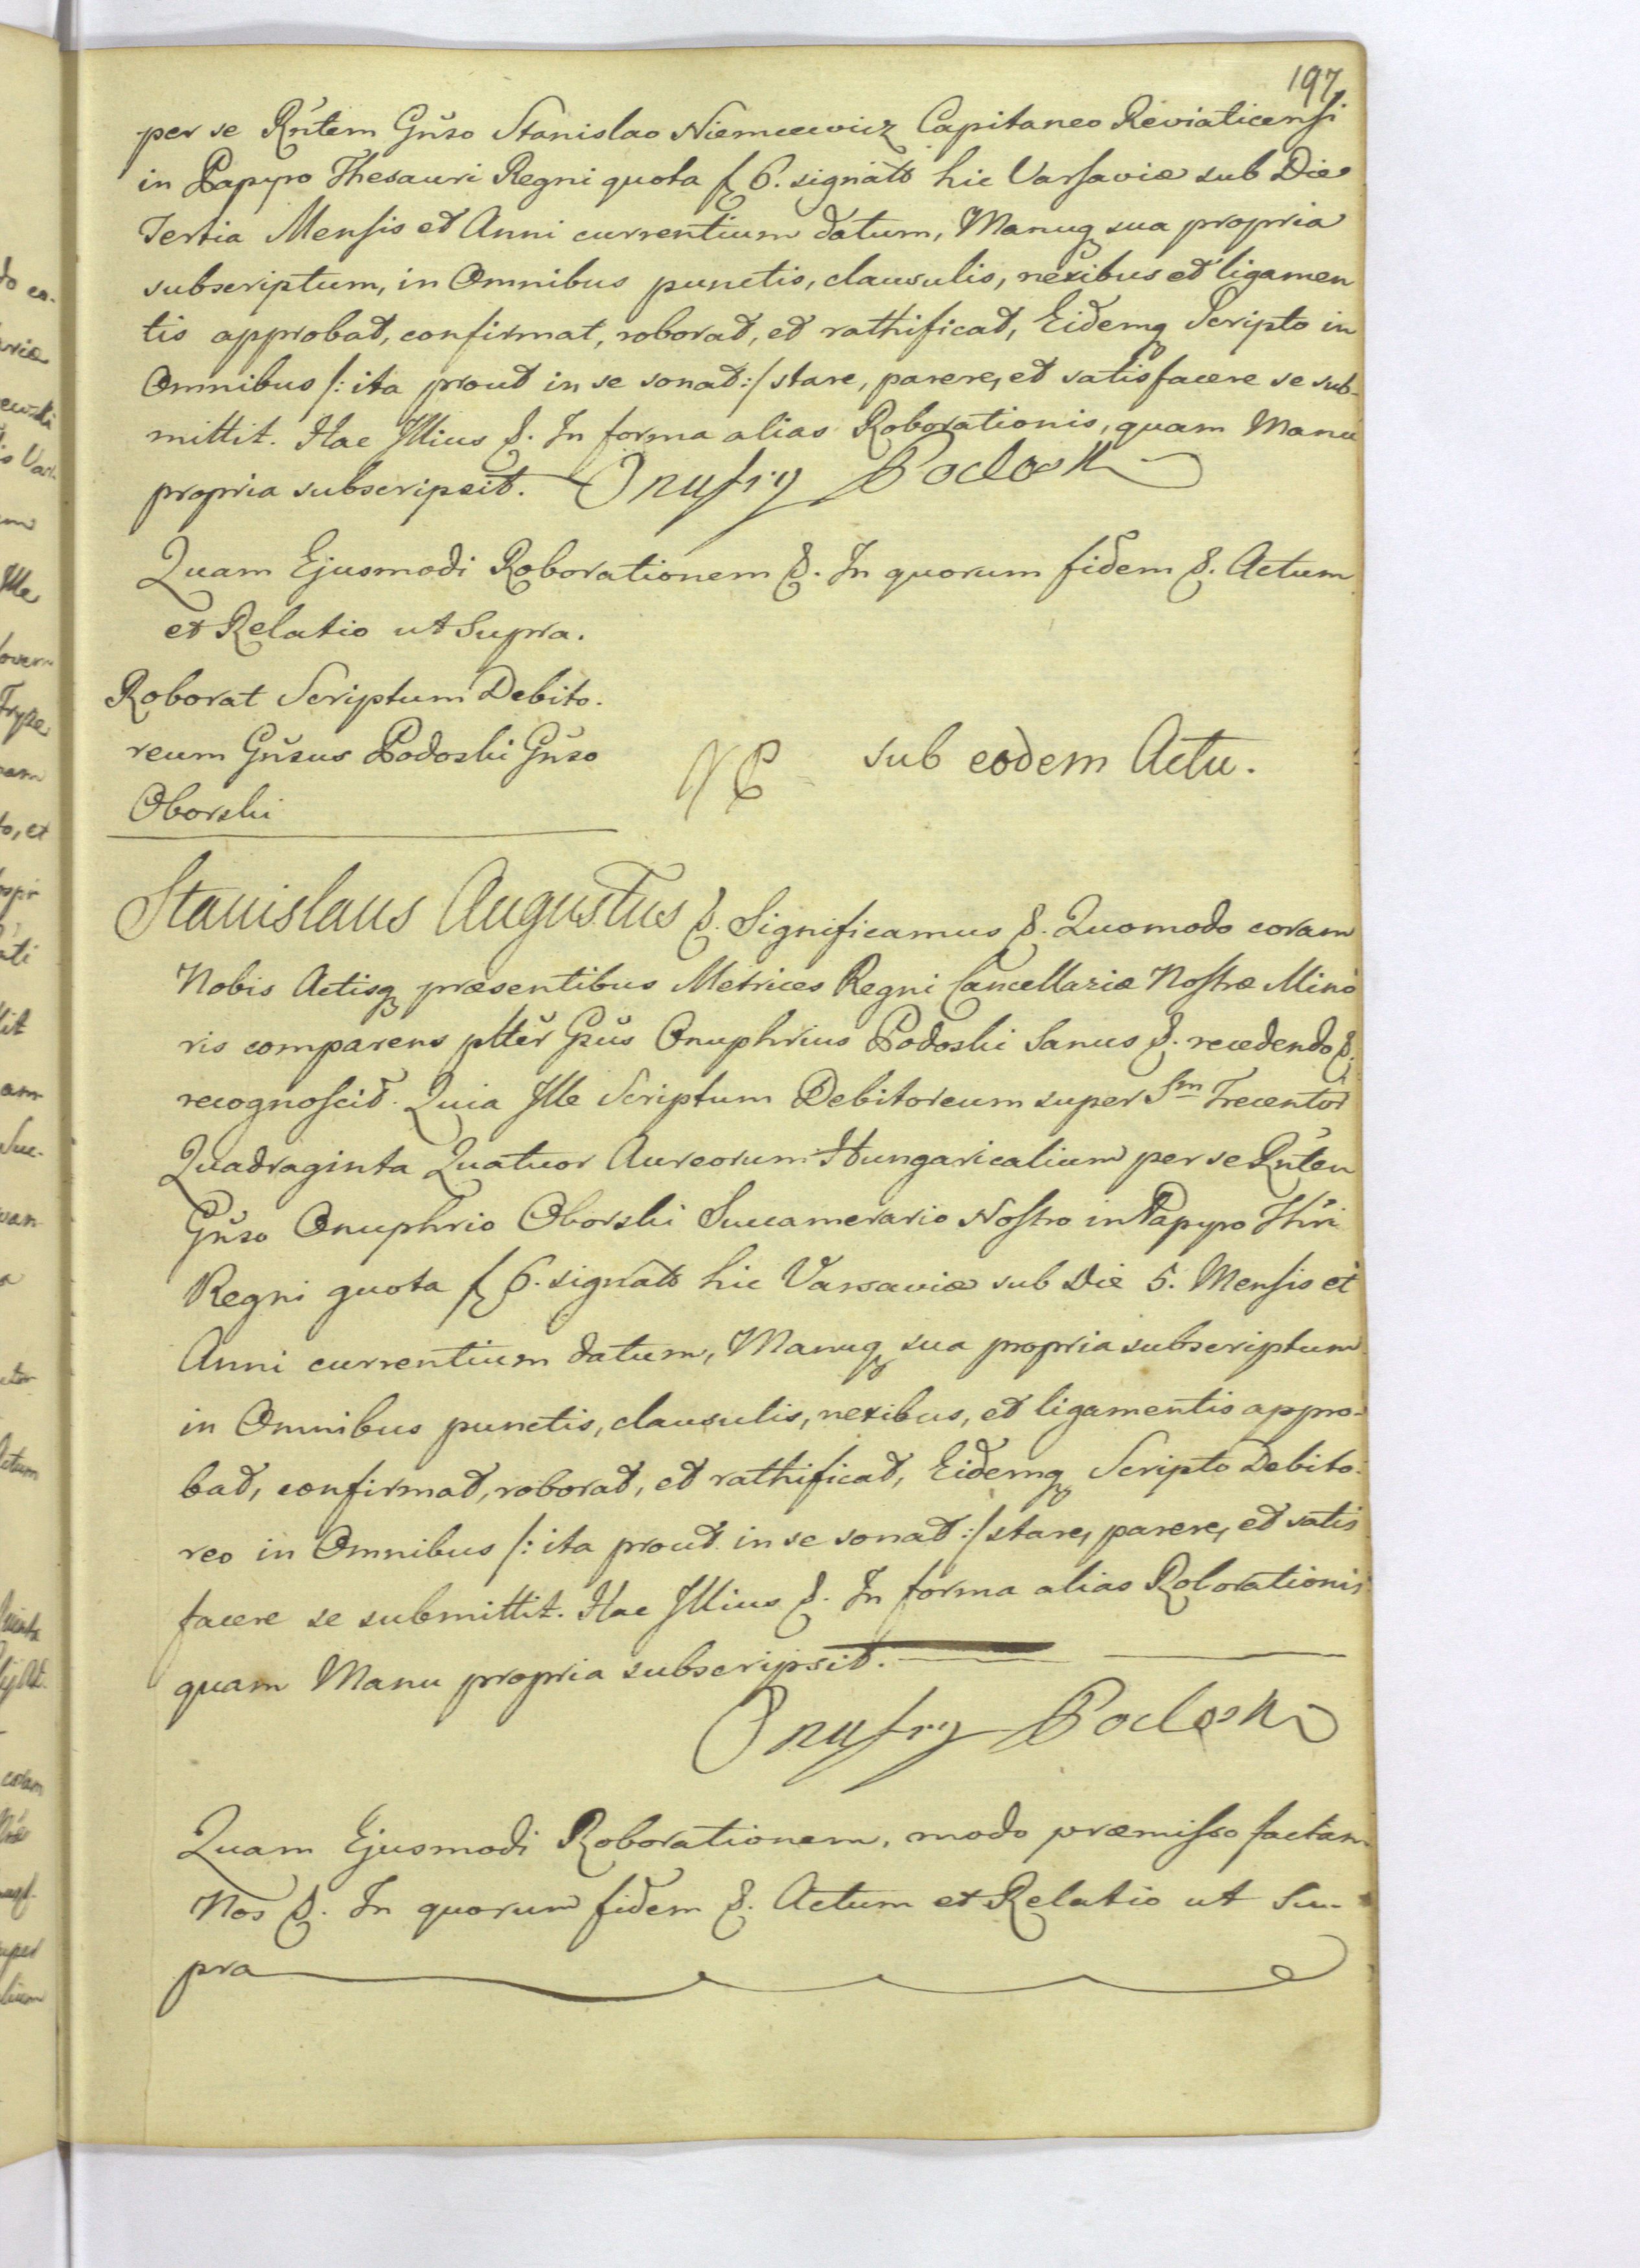 197
per se Rñtem Gñso Stanislao Niemcewicz Capitaneo Reviaticensi
in Papyro Thesauri Regni quota f 6. signato hic Varsaviæ sub Die
Tertia Mensis et Anni currentium datum, Manuq sua propria
subscriptum, in Omnibus punctis, clausulis, nexibus et ligamen
tis approbat, confirmat, roborat, et rathificat, Eidemq Scripto in
Omnibus /: ita prout in se sonat :/ stare, parere, et satisfacere se sub-
mittit. Hac Illius &. In forma alias Roborationis, quam Manu
propria subscripsit. Onufry Podoski
Quam Ejusmodi Roborationem &. In quorum fidem &. Actum
et Relatio ut Supra.
Roborat Scriptum Debito.
reum Gñsus Podoski Gñso
Oborski
sub eodem Actu.
Stanislaus Augustus &. Significamus &. Quomodo coram
Nobis Actisq præsentibus Metrices Regni Cancellariæ Nostræ Mino
ris comparens pltter Gsus Onuphrius Podoski Sanus &. recedendo &.
recognoscit. Quia Ille Scriptum Debitoreum super Sm Trecentor
Quadraginta Quatuor Aureorum Hungaricalium per se Rñtem
Gñso Onuphrio Oborski Succamerario Nostro in Papyro Thri
Regni quota f 6. signato hic Varsaviæ sub Die 5. Mensis et
Anni currentium datum, Manuq sua propria subscriptum
in Omnibus punctis, clausulis, nexibus, et ligamentis appro-
bat, confirmat, roborat, et rathificat, Eidemq Scripto Debito-
reo in Omnibus /: ita prout in se sonat :/ stare, parere, et satis
facere se submittit. Hac Illius &. In forma alias Roborationis
quam Manu propria subscripsit.
Onufry Podoski
Quam Ejusmodi Roborationem, modo præmisso factam
Nos &. In quorum fidem &. Actum et Relatio ut Su-
pra